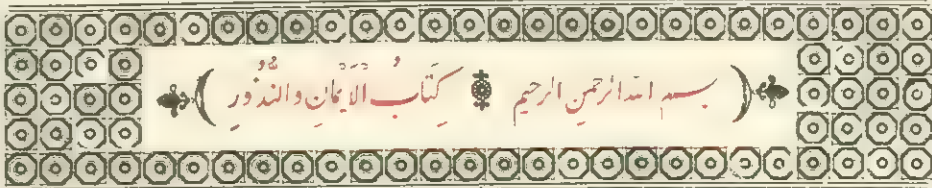 بسم الله الرحمن الرحيم كِتَابُ الأَيْمَانِ والنُّذُورِ